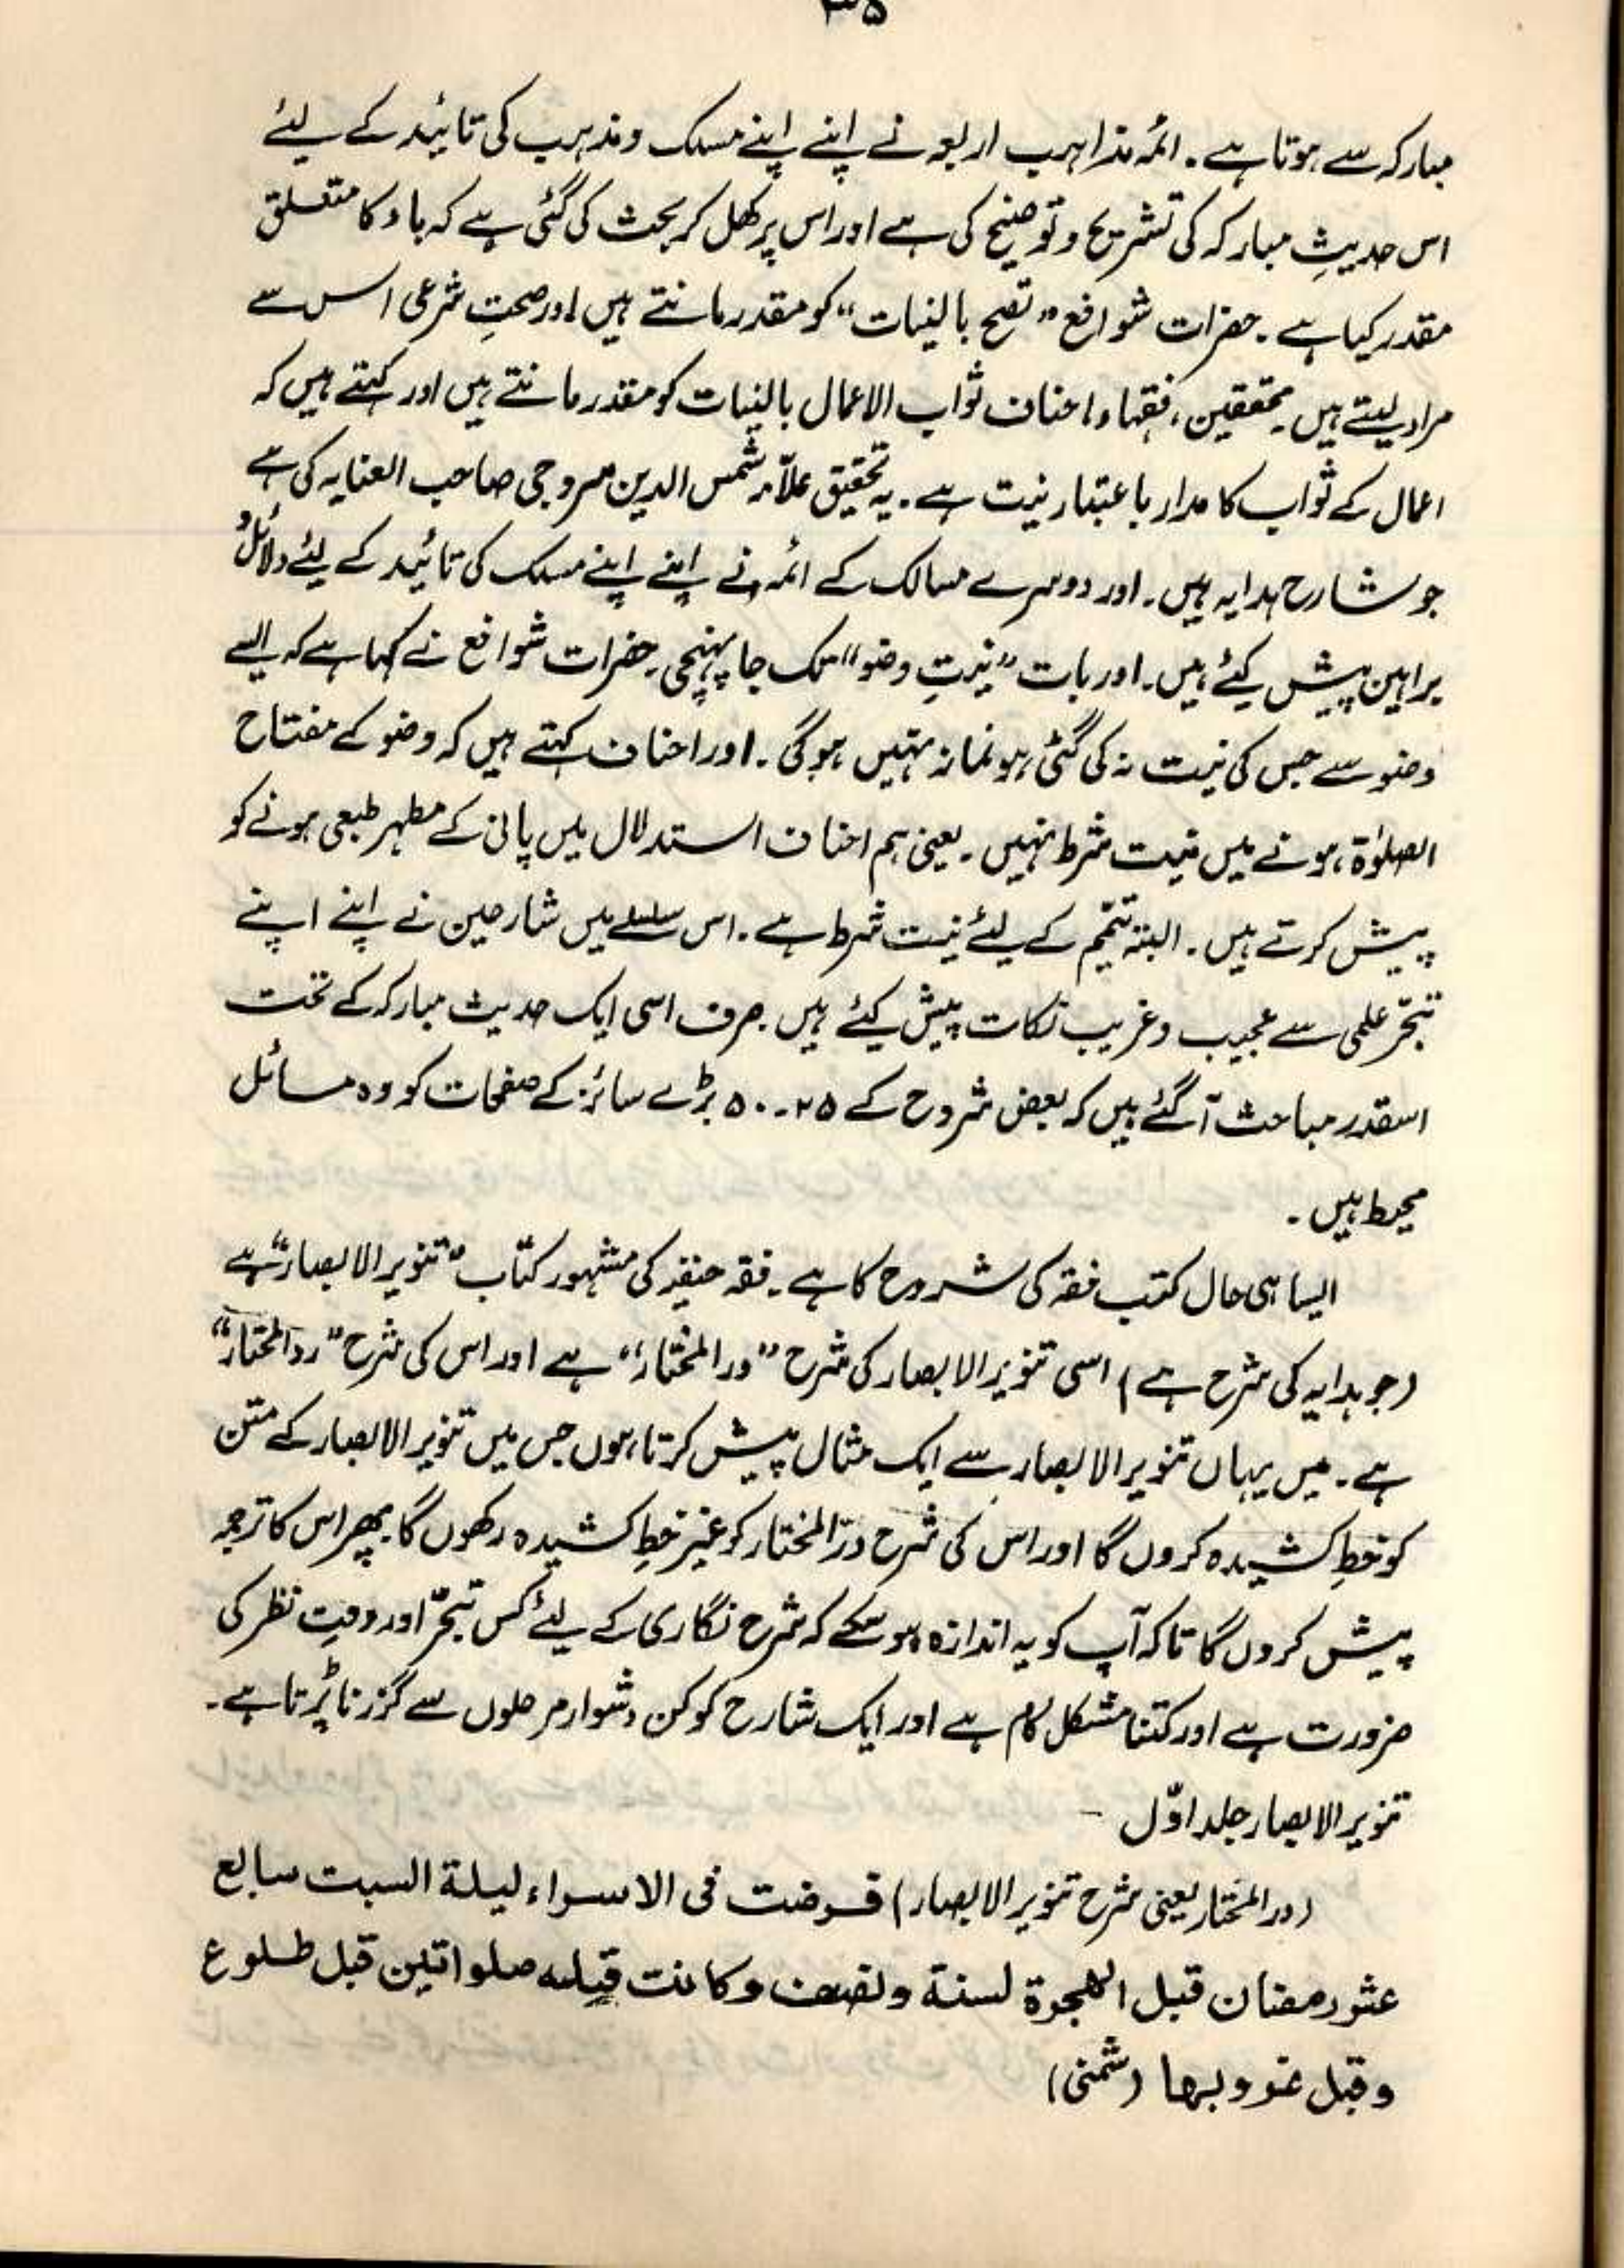 ۳۵
مبارکہ سے ہوتا ہے۔ ائمہ مذاہب اربعہ نے اپنے اپنے مسلک و مذہب کی تائید کے لیئے
اس حدیثِ مبارکہ کی تشریح و توضیح کی ہے اور اس پر کھل کر بحث کی گئی ہے کہ باء کا متعلق
مقدر کیا ہے۔ حضرات شوافع "تصح بالنیات" کو مقدر مانتے ہیں اور صحتِ شرعی اس سے
مراد لیتے ہیں۔ محققین، فقہاء احناف ثواب الاعمال بالنیات کو مقدر مانتے ہیں اور کہتے ہیں کہ
اعمال کے ثواب کا مدار باعتبار نیت ہے۔ یہ تحقیق علامہ شمس الدین سروجی صاحب العنایہ کی ہے
جو شارح ہدایہ ہیں۔ اور دوسرے مسالک کے ائمہ نے اپنے اپنے مسلک کی تائید کے لیئے دلائل و
براہین پیش کیئے ہیں۔ اور بات "نیتِ وضو" تک جا پہنچی۔ حضرات شوافع نے کہا ہے کہ ایسے
وضو سے جس کی نیت نہ کی گئی ہو نماز نہیں ہوگی۔ اور احناف کہتے ہیں کہ وضو کے مفتاح
الصلوٰۃ ہونے میں نیت شرط نہیں۔ یعنی ہم احناف استدلال میں پانی کے مطہر طبعی ہونے کو
پیش کرتے ہیں۔ البتہ تیمّم کے لیئے نیت شرط ہے۔ اس سلسلے میں شارحین نے اپنے اپنے
تبحّر علمی سے عجیب و غریب نکات پیش کیئے ہیں۔ صرف اسی ایک حدیث مبارکہ کے تحت
اسقدر مباحث آ گئے ہیں کہ بعض شروح کے ۲۵۔۵۰ بڑے سائز کے صفحات کو وہ مسائل
محیط ہیں۔
ایسا ہی حال کتب فقہ کی شروح کا ہے۔ فقہ حنفیہ کی مشہور کتاب "تنویر الابصار" ہے
(جو ہدایہ کی شرح ہے) اسی تنویر الابصار کی شرح "در المختار" ہے اور اس کی شرح "رد المحتار"
ہے۔ میں یہاں تنویر الابصار سے ایک مثال پیش کرتا ہوں جس میں تنویر الابصار کے متن
کو خطِ کشیدہ کروں گا اور اس کی شرح درّ المختار کو غیر خطِ کشیدہ رکھوں گا پھر اس کا ترجمہ
پیش کروں گا تاکہ آپ کو یہ اندازہ ہو سکے کہ شرح نگاری کے لیئے کس تبحّر اور دقتِ نظر کی
ضرورت ہے اور کتنا مشکل کام ہے اور ایک شارح کو کن دشوار مرحلوں سے گزرنا پڑتا ہے۔
تنویر الابصار جلد اوّل –
(در المختار یعنی شرح تنویر الابصار) فرضت فی الاسراء لیلة السبت سابع
عشر رمضان قبل الھجرة لسنة ونصف وکانت قبله صلواتین قبل طلوع
وقبل غروبها (شمنی)